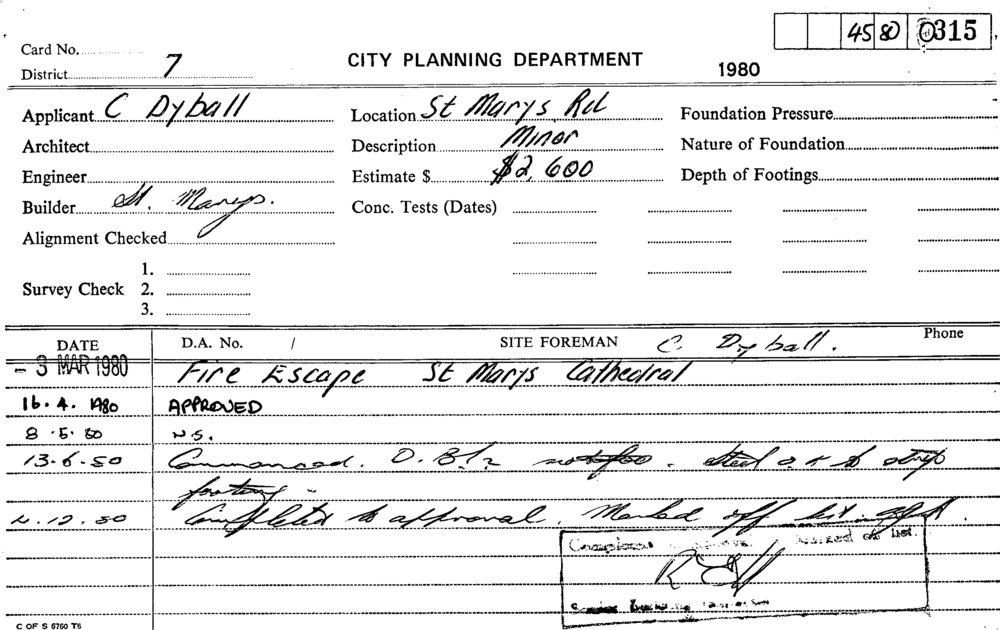 45 80 0315
Card No.
CITY PLANNING DEPARTMENT
1980
District 7
Applicant C Dyball Location St Marys Rd Foundation Pressure
Architect Description Minor Nature of Foundation
Engineer Estimate $ $2,600 Depth of Footings
Builder St. Marys. Conc. Tests (Dates)
Alignment Checked
1.
Survey Check 2.
3.
DATE D.A. No. / SITE FOREMAN C. Dyball. Phone
- 3 MAR 1980 Fire Escape St Marys Cathedral
16.4.1980 APPROVED
8.5.80 N.S.
13.6.80 Commenced. steel o.k to strip
footing
2.12.80 Completed to approval. Marked off list
Marked off list.
C OF S 6760 T6